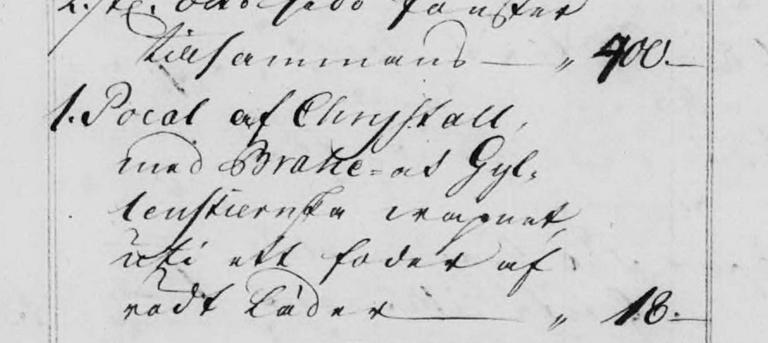 tillsammans — " 400. —
1. Pocal af Chrystall,
med Brahe= och Gyl=
lenstiernska wapnet,
uti ett foder af
rödt Läder — " 18. —